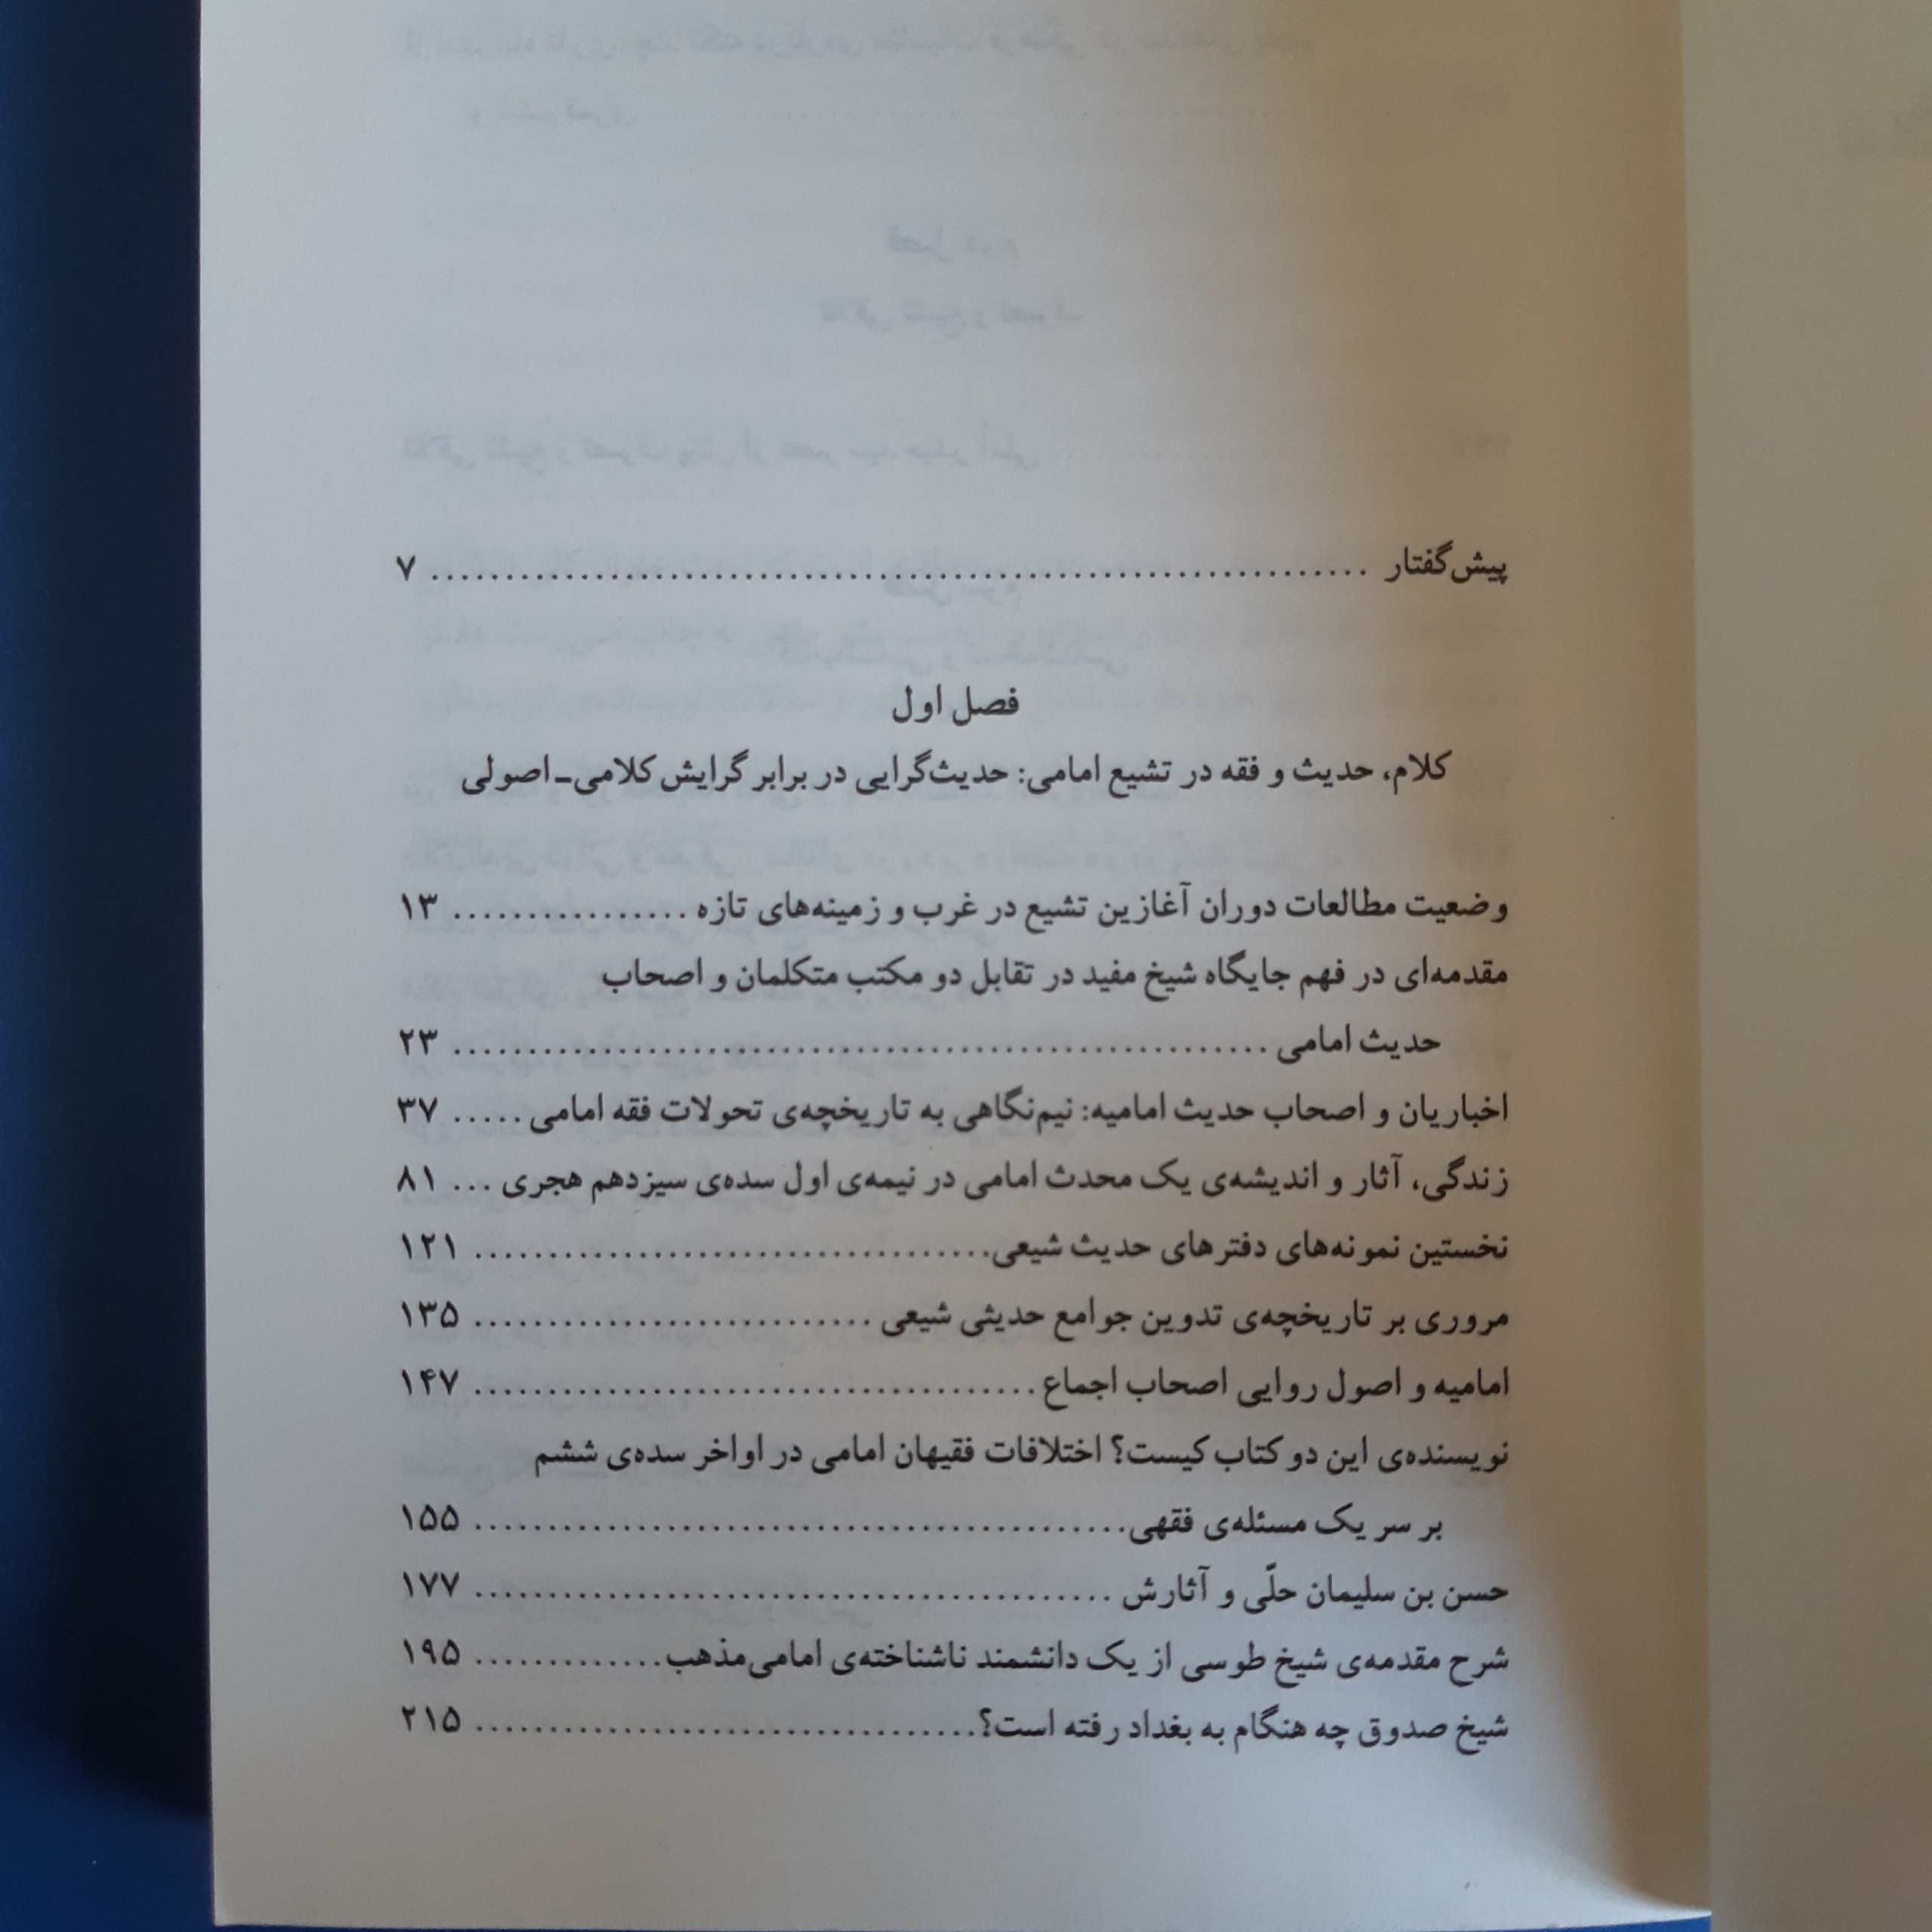 پیش‌گفتار ........ ۷
فصل اول
کلام، حدیث و فقه در تشیع امامی: حدیث‌گرایی در برابر گرایش کلامی-اصولی
وضعیت مطالعات دوران آغازین تشیع در غرب و زمینه‌های تازه ........ ۱۳
مقدمه‌ای در فهم جایگاه شیخ مفید در تقابل دو مکتب متکلمان و اصحاب
حدیث امامی ........ ۲۳
اخباریان و اصحاب حدیث امامیه: نیم‌نگاهی به تاریخچه‌ی تحولات فقه امامی ..... ۳۷
زندگی، آثار و اندیشه‌ی یک محدث امامی در نیمه‌ی اول سده‌ی سیزدهم هجری ... ۸۱
نخستین نمونه‌های دفترهای حدیث شیعی ........ ۱۲۱
مروری بر تاریخچه‌ی تدوین جوامع حدیثی شیعی ........ ۱۳۵
امامیه و اصول روایی اصحاب اجماع ........ ۱۴۷
نویسنده‌ی این دو کتاب کیست؟ اختلافات فقیهان امامی در اواخر سده‌ی ششم
بر سر یک مسئله‌ی فقهی ........ ۱۵۵
حسن بن سلیمان حلّی و آثارش ........ ۱۷۷
شرح مقدمه‌ی شیخ طوسی از یک دانشمند ناشناخته‌ی امامی‌مذهب ........ ۱۹۵
شیخ صدوق چه هنگام به بغداد رفته است؟ ........ ۲۱۵